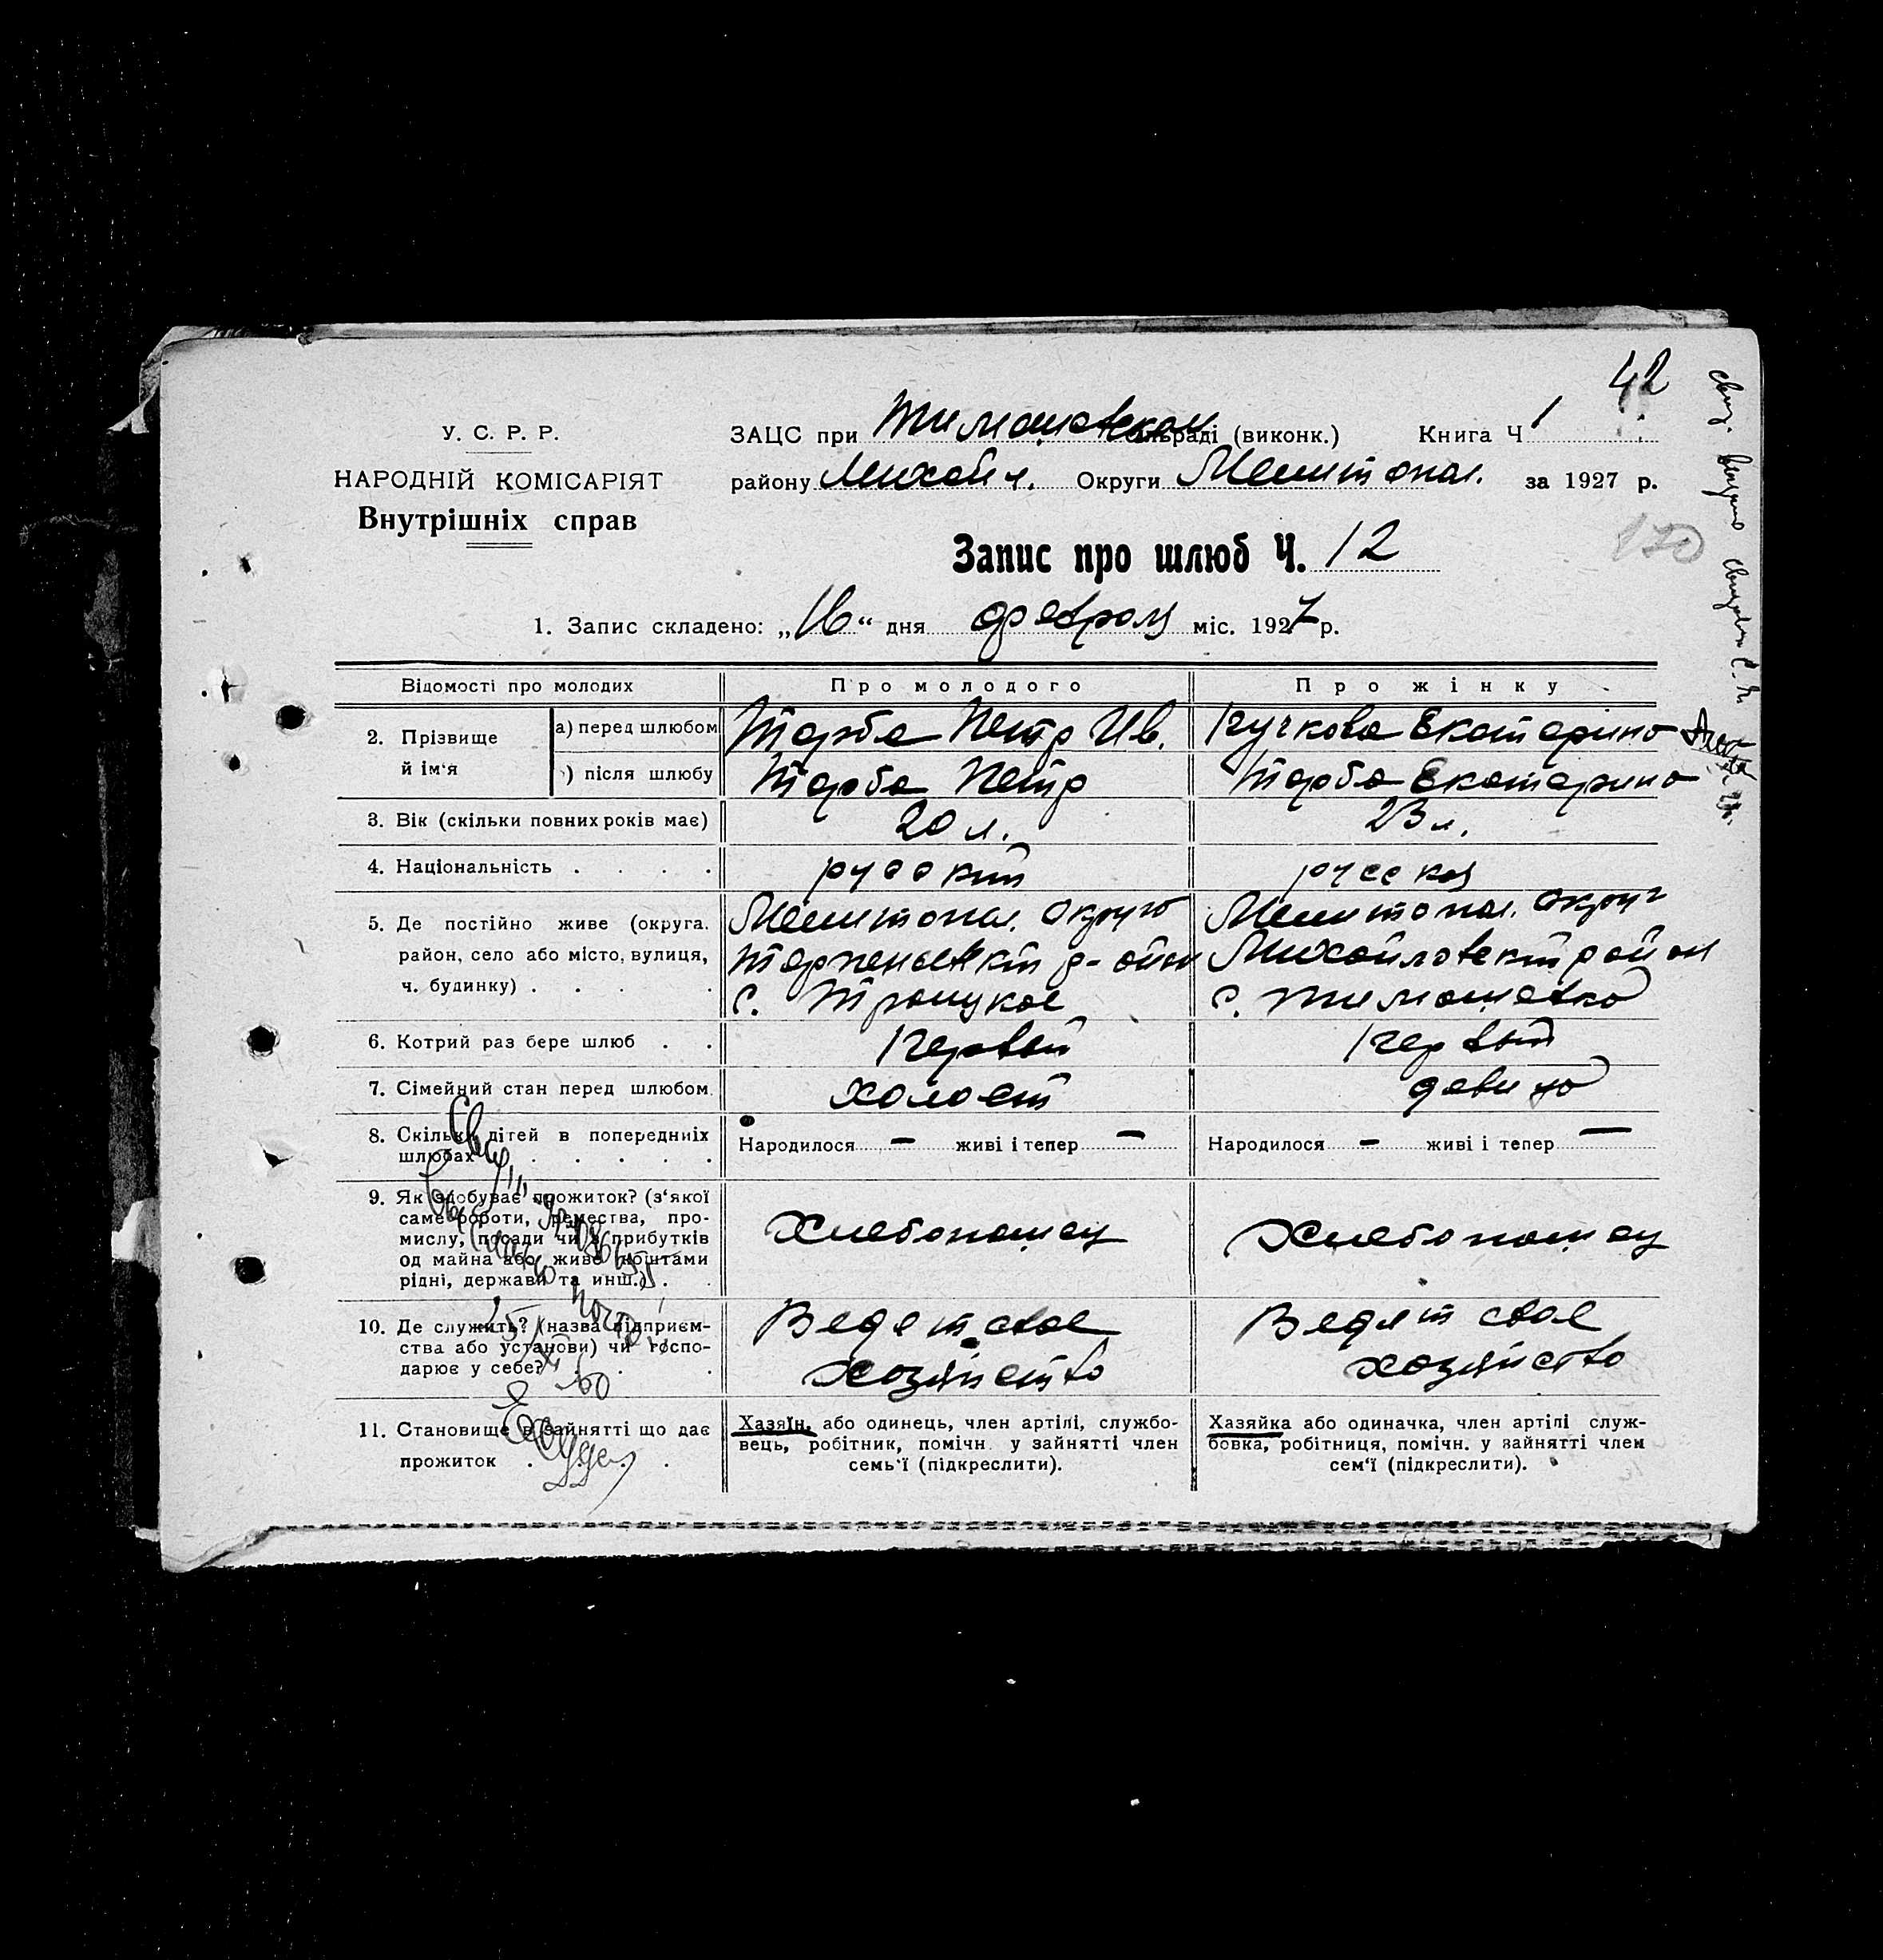 42
У. С. Р. Р.
НАРОДНІЙ КОМІСАРІЯТ
Внутрішніх справ
ЗАЦС при Тимошевском сільраді (виконк.) Книга Ч 1
району Михайл. Округи Мелитопол. за 1927 р.
170
Запис про шлюб Ч. 12
1. Запис складено: „16“ дня февраля міс. 1927 р.
Відомості про молодих Про молодого Про жінку
2. Прізвище й ім‘я
а) перед шлюбом Тарба Петр Ив. Кучкова Екатерина
) після шлюбу Тарба Петр Тарба Екатерина
3. Вік (скільки повних років має) 20 л. 23 л.
4. Національність . . . . русский русская
5. Де постійно живе (округа, район, село або місто, вулиця, ч. будинку) . . .
Мелитопол. округ
р-айон
с. Троицкое
Мелитопол. округ
Михайловский район
с. Тимошевка
6. Котрий раз бере шлюб . . Первый Первый
7. Сімейний стан перед шлюбом. холост девица
8. Скільки дітей в попередниіх шлюбах . . . . . Народилося — живі і тепер — Народилося — живі і тепер —
9. Як здобуває прожиток? (з‘якої
саме роботи, ремества, про-
мислу, посади чи з прибутків
од майна або живе коштами
рідні, держави та инш.) . .
Хлебопашец
Хлебопашец
10. Де служить? (назва підприєм-
ства або установи) чи госпо-
дарює у себе? . . .
Ведет свое
хозяйство
Ведет свое
хозяйство
11. Становище в зайнятті що дає
прожиток . . . .
Хазяїн, або одинець, член артілі, службо-
вець, робітник, помічн. у зайнятті член
семь‘ї (підкреслити).
Хазяйка або одиначка, член артілі служ-
бовка, робітниця, помічн. у зайнятті член
сем‘ї (підкреслити).